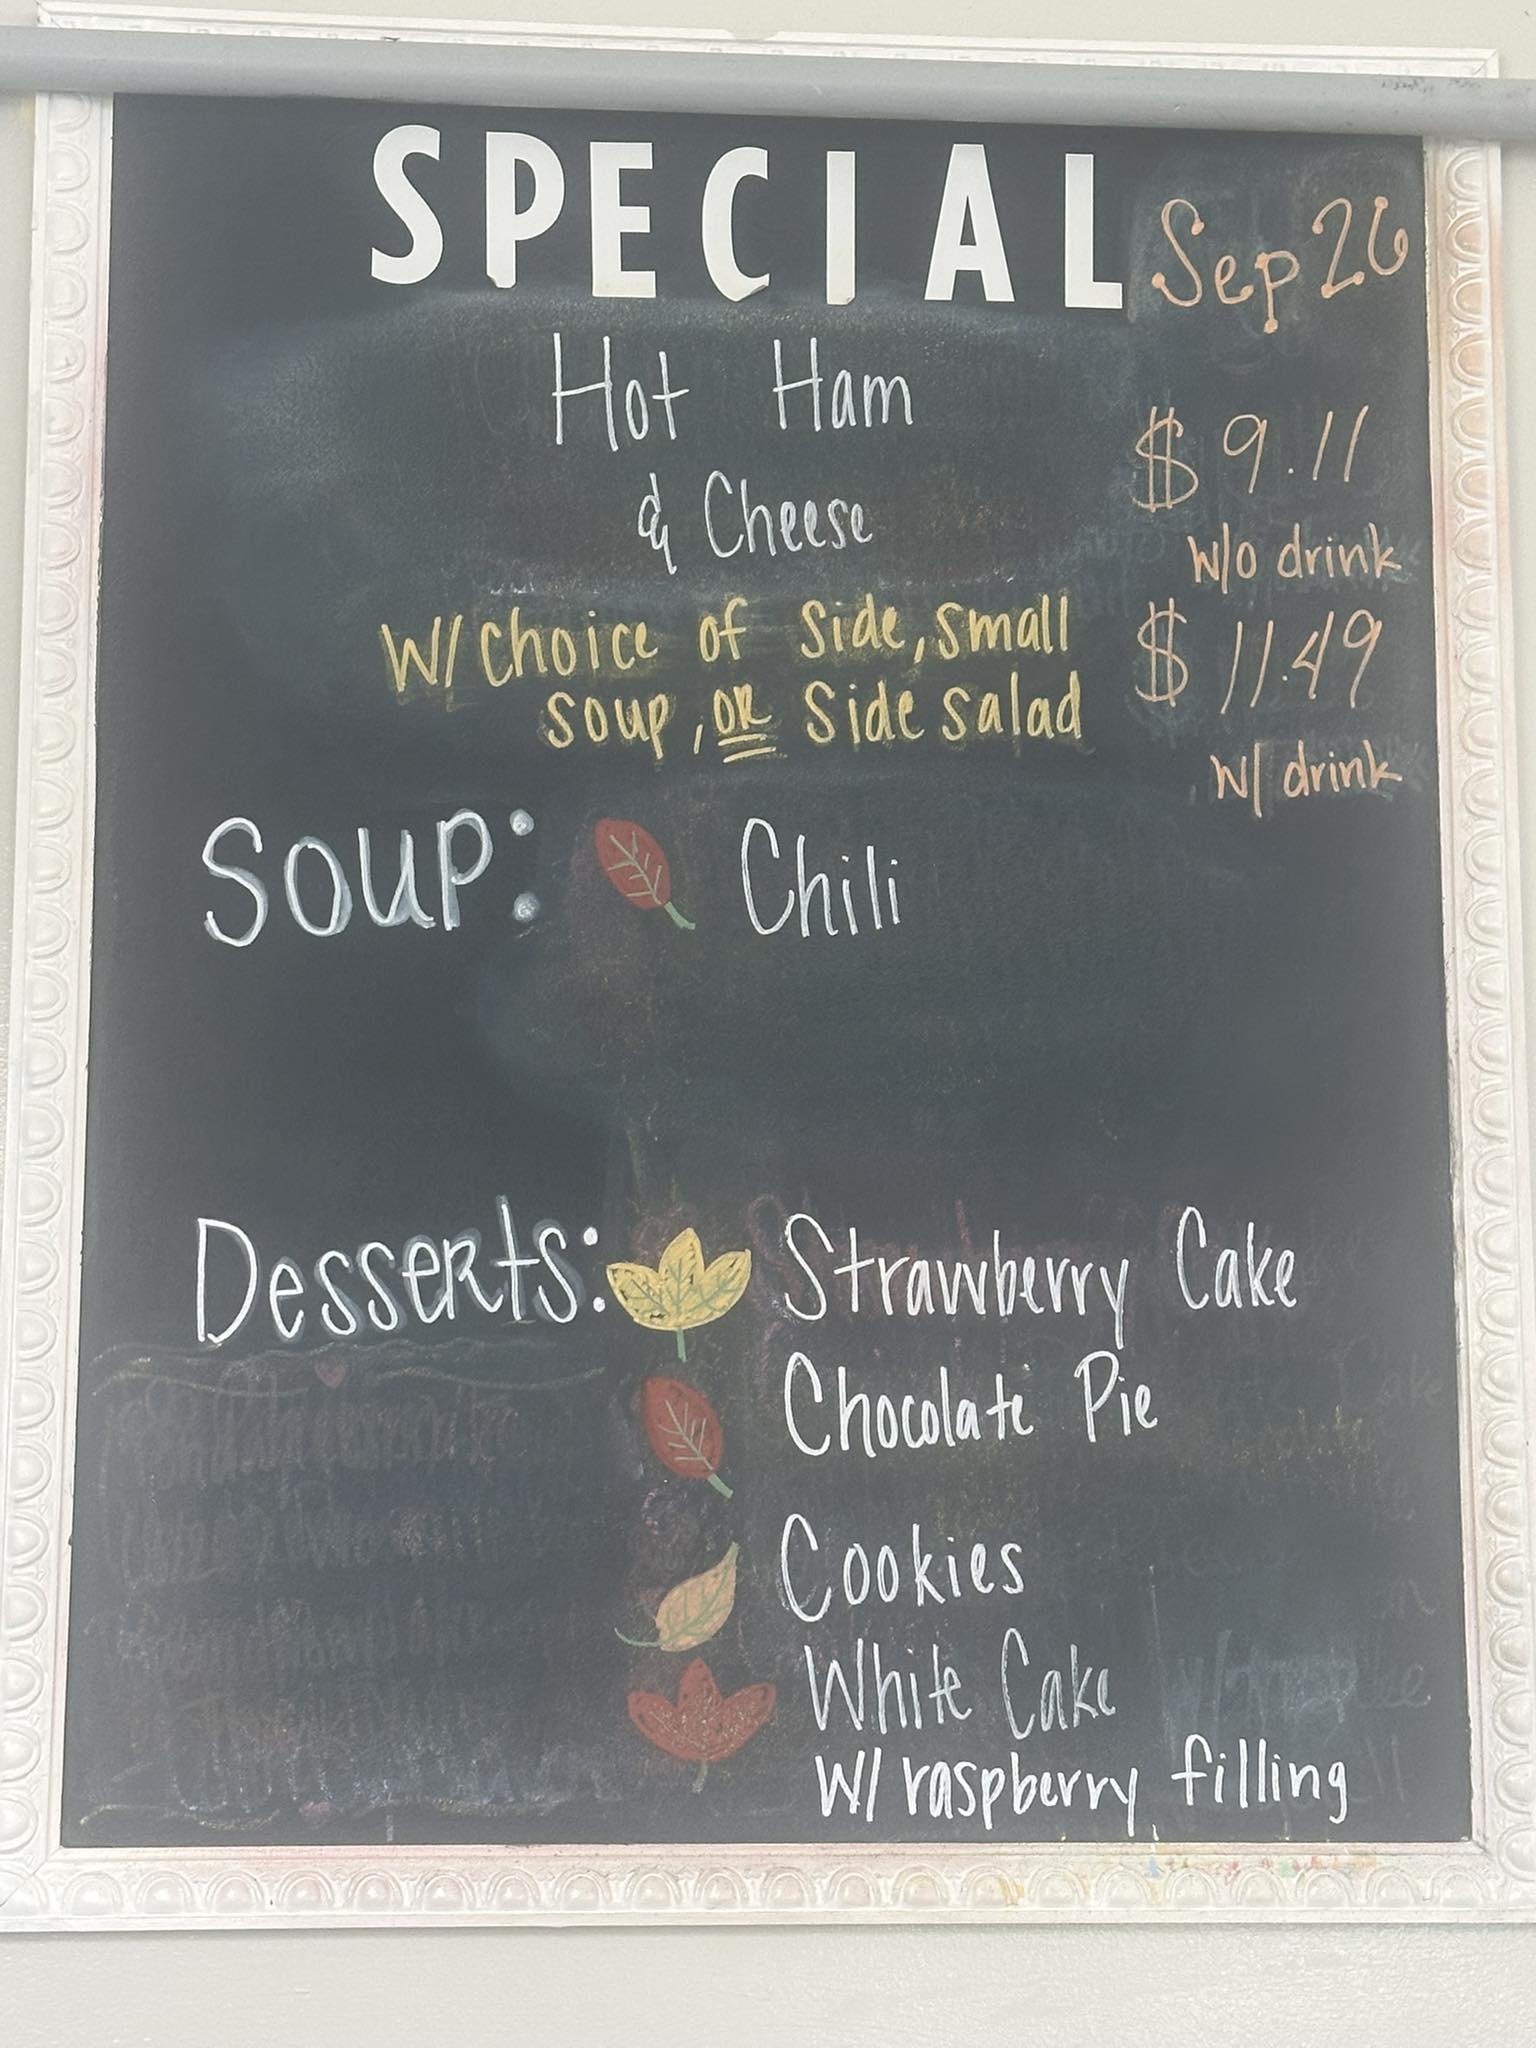 SPECIAL
Sep 26
Hot Ham
& Cheese
W/ choice of side, small
soup, OR side salad
$9.11
w/o drink
$11.49
w/ drink
Soup: Chili
Desserts: Strawberry Cake
Chocolate Pie
Cookies
White Cake
w/ raspberry filling